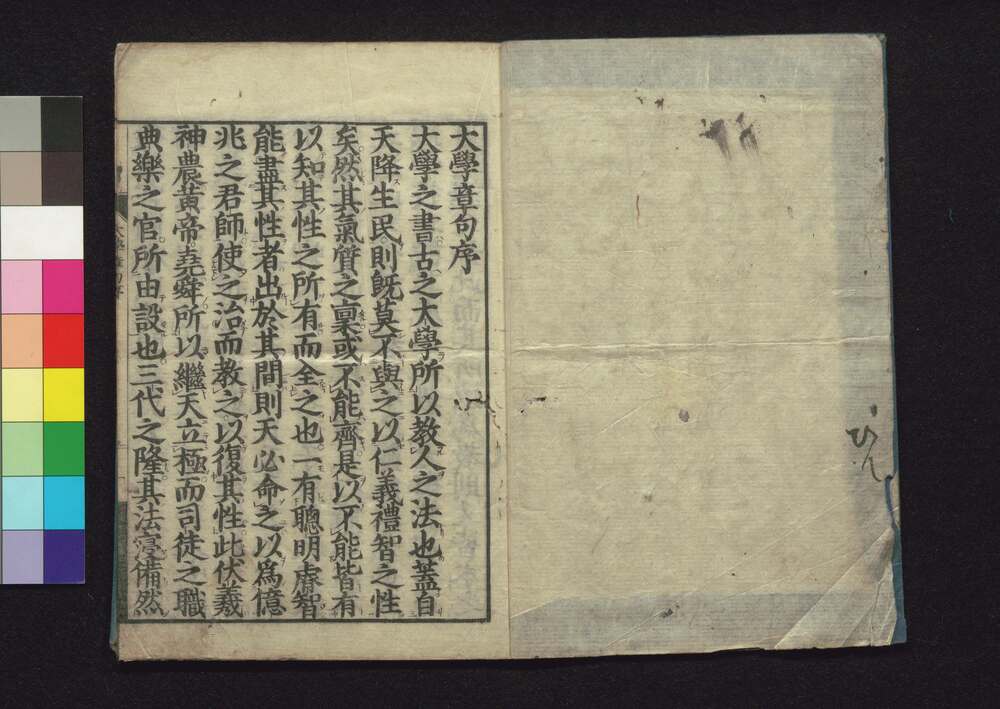 大學章句序
大學之書古之大學所以教人之法也蓋自
天降生民則旣莫不與之以仁義禮智之性
矣然其氣質之稟或不能齊是以不能皆有
以知其性之所有而全之也一有聰明睿智
能盡其性者出於其間則天必命之以爲億
兆之君師使之治而教之以復其性此伏羲
神農黃帝堯舜所以繼天立極而司徒之職
典樂之官所由設也三代之隆其法寖備然